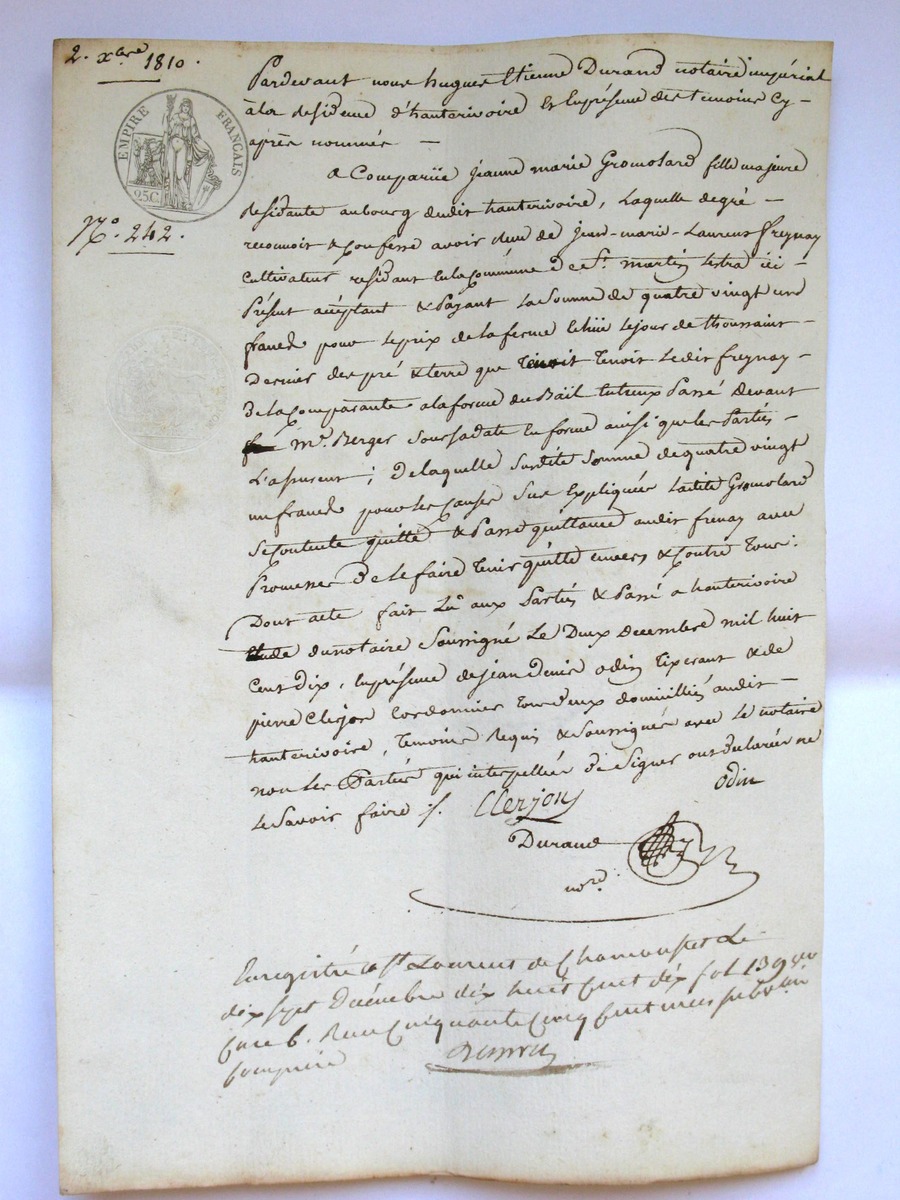 2. xbre 1810.
EMPIRE FRANÇAIS
25C.
N.° 242.
Pardevant nous hugues Etienne Durand notaire impérial
à la residence d'hauterivoire Et En présence des temoins Cy-
après nommés —
a Compariie jeanne marie Gromolard fille majeure
residante au bourg dudit hauterivoire, Laquelle de gré —
reconnoit & Confesse avoir reçu de jean-marie-Laurent freynay
cultivateur residant En la Commune de St. martin Lestra ici —
Présent acceptant & Payant La Somme de quatre vingt un
francs pour Le prix de la ferme Echüe Le jour de thoussaint —
Dernier des pré & terre que Tenoit Ledit freynay —
de la Comparante a la forme du Bail Entreux Passé devant
Me. Berger Sous Sa date En forme ainsi que les Parties —
L'assurent ; de laquelle Susdite Somme de quatre vingt
un francs pour les causes Sus Expliquées Ladite Gromolard
Se Contente quitte & Passe quittance audit frenay avec
Promesse de le faire Tenir quitte envers & Contre Tous :
Dont acte fait Lu aux Parties & Passé a hauterivoire
Etude du notaire Soussigné Le Deux Decembre mil huit
Cent Dix, En présence de jean Denis odin Tixerant & de
pierre Clerjon Cordonnier Tous Deux domiciliés audit —
hauterivoire, Temoins Requis & Soussignés avec Le notaire
non Les Parties qui interpellées de Signer ont declarées ne
Le Savoir faire ./.
Clerjon
odin
Durand
nore.
Enregistré a St Laurent de Chamousset Le
dix sept Décembre dix huit Cent dix fol 139 vo
Case 6. Reçu Cinquante Cinq Centimes
Compris